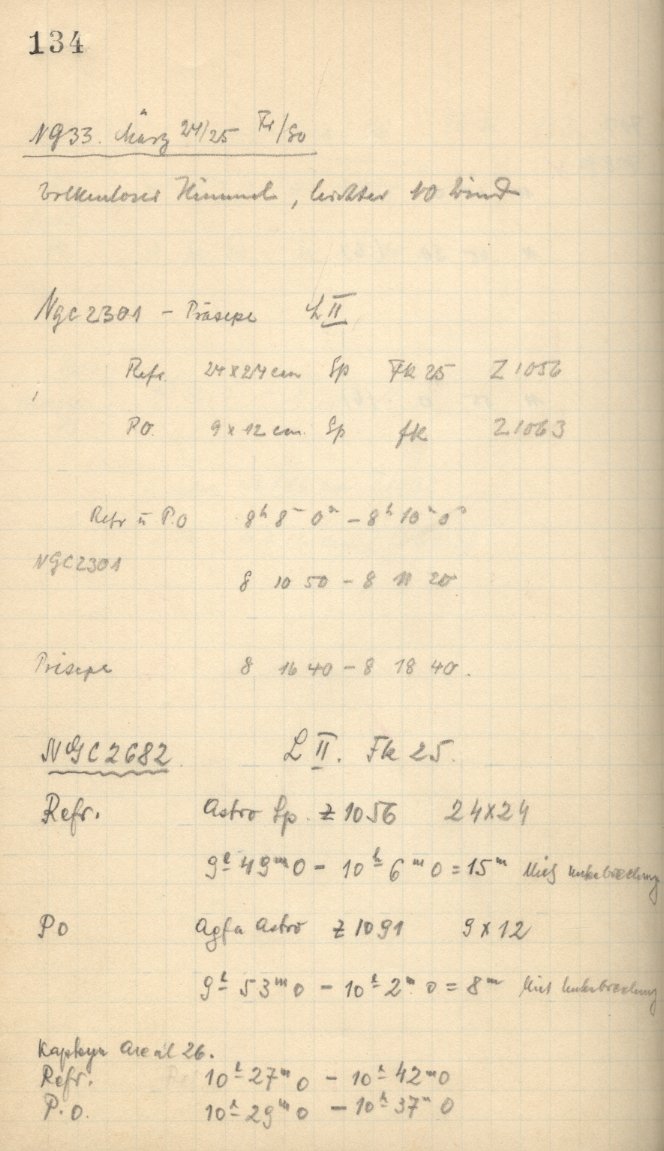 134
1933. März 24/25 Fr/So
Wolkenloser Himmel, leichter NO Wind
Ngc 2301 - Präsepe L II
Refr. 24x24 cm Sp Fk 25 Z 1056
PO. 9 x 12 cm. Sp fk Z 1063
Refr u P.O 8h 8m 0s - 8h 10m 0s
NGC2301
8 10 50 - 8 11 20
Präsepe 8 16 40 - 8 18 40.
NGC 2682 L II. Fk 25.
Refr. Astro Sp. Z 1056 24x24
9h 49m 0 - 10h 6m 0 = 15m Mit Unterbrechung
PO Agfa Astro Z 1091 9 x 12
9h 53m 0 - 10h 2m 0 = 8m Mit Unterbrechung
Kapteyn Areal 26.
Refr. 10h 27m 0 - 10h 42m 0
P.O. 10h 29m 0 - 10h 37m 0